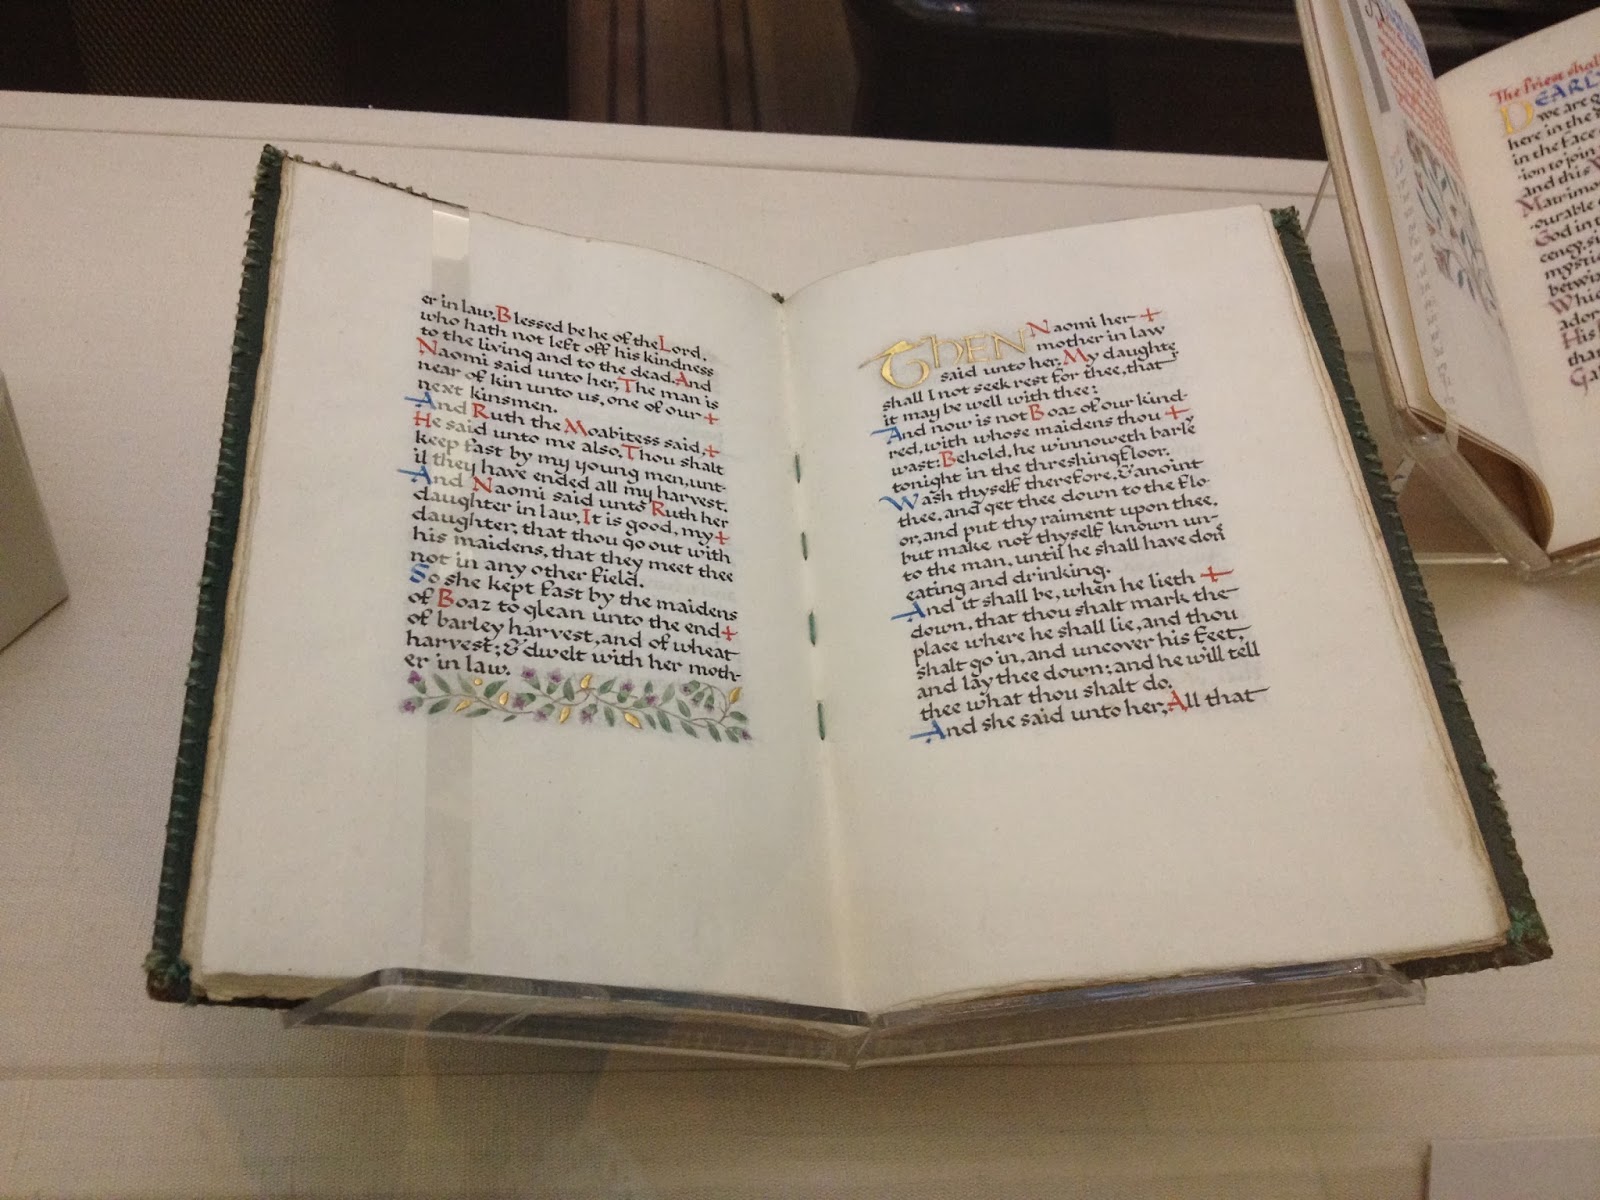 er in law, Blessed be he of the Lord,
who hath not left off his kindness
to the living and to the dead. And
Naomi said unto her, The man is
near of kin unto us, one of our +
next kinsmen.
And Ruth the Moabitess said, +
He said unto me also, Thou shalt
keep fast by my young men, unt-
il they have ended all my harvest.
And Naomi said unto Ruth her
daughter in law, It is good, my +
daughter, that thou go out with
his maidens, that they meet thee
not in any other field.
So she kept fast by the maidens
of Boaz to glean unto the end +
of barley harvest, and of wheat
harvest; & dwelt with her moth-
er in law.
THEN Naomi her +
mother in law
said unto her, My daughte
shall I not seek rest for thee, that
it may be well with thee:
And now is not Boaz of our kind-
red, with whose maidens thou +
wast: Behold, he winnoweth barle
tonight in the threshingfloor.
Wash thyself therefore, & anoint
thee, and get thee down to the flo-
or, and put thy raiment upon thee,
but make not thyself known un-
to the man, until he shall have don
eating and drinking.
And it shall be, when he lieth +
down, that thou shalt mark the
place where he shall lie, and thou
shalt go in, and uncover his feet,
and lay thee down; and he will tell
thee what thou shalt do.
And she said unto her, All that
The Priest shal
DEARL
we are g
here in the
in the face
-ion to join
and this
Matrimo
-ourable
God in t
cency, si
mystic
betwix
Whic
ador
His
than
Ga